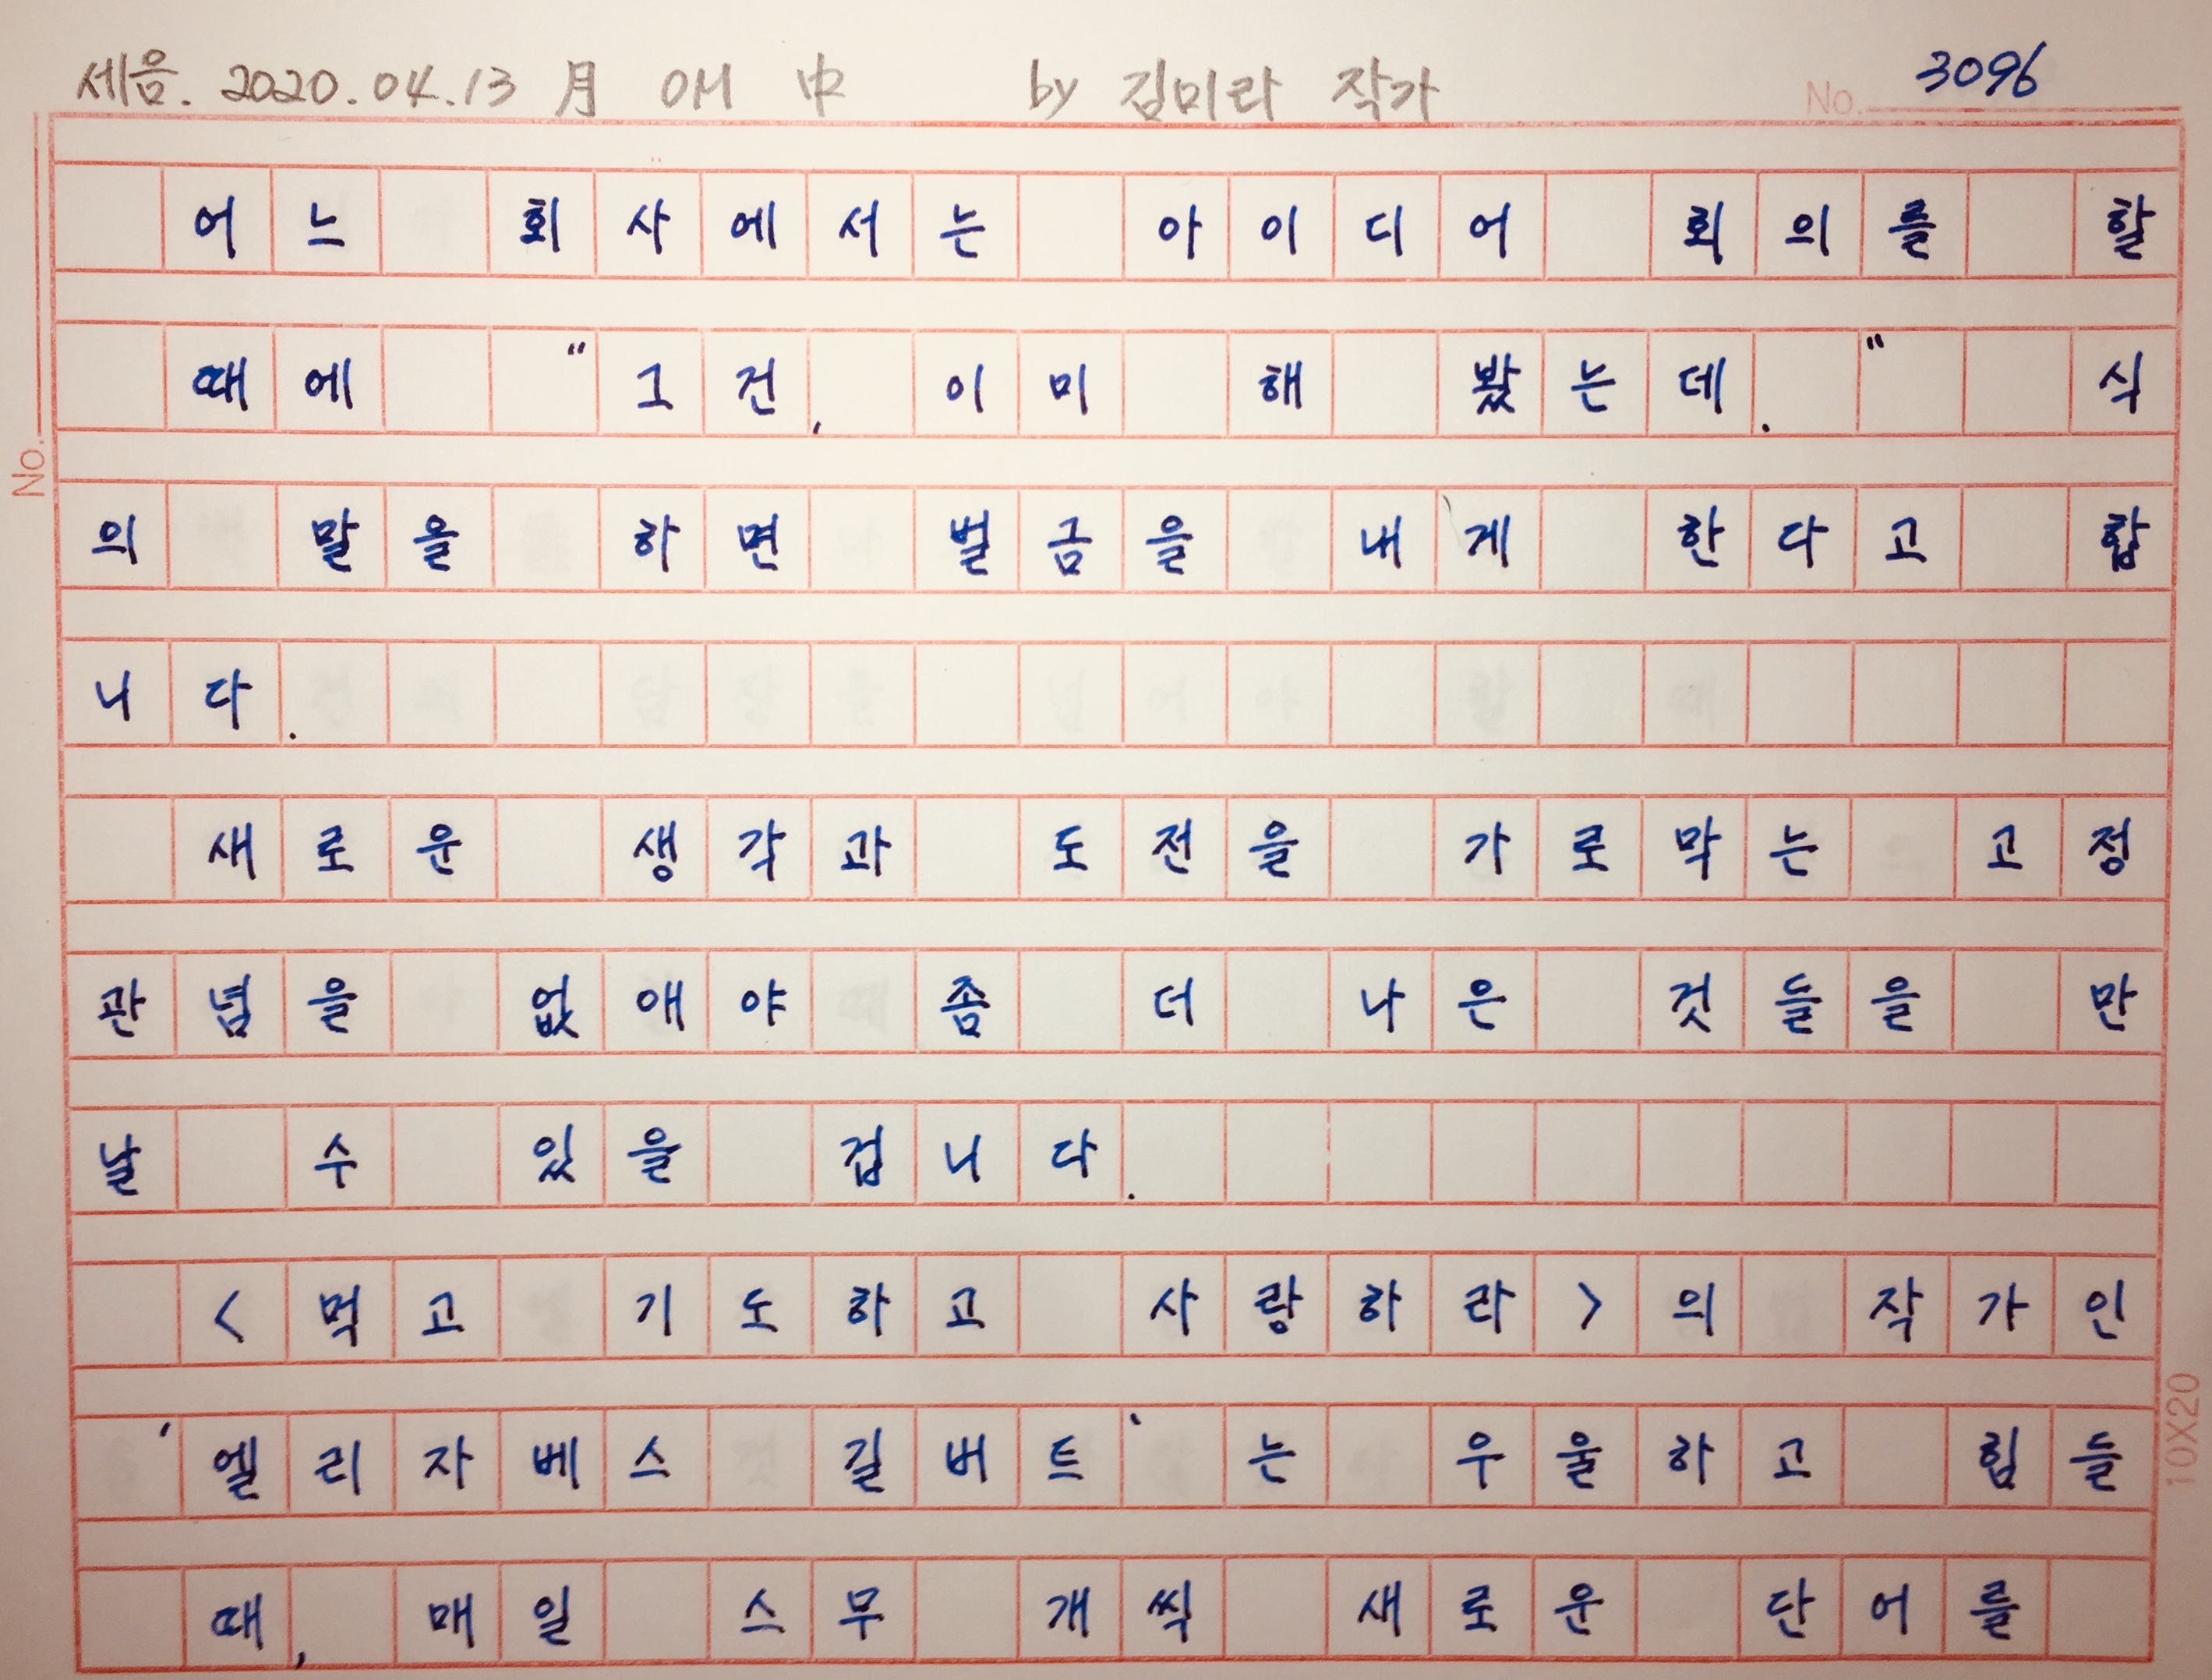 세음. 2020.04.13 月 OM 中 by 김미라 작가 No. 3096
어느 회사에서는 아이디어 회의를 할
때에 "그건, 이미 해 봤는데." 식
의 말을 하면 벌금을 내게 한다고 합
니다.
새로운 생각과 도전을 가로막는 고정
관념을 없애야 좀 더 나은 것들을 만
날 수 있을 겁니다.
<먹고 기도하고 사랑하라>의 작가인
'엘리자베스 길버트'는 우울하고 힘들
때, 매일 스무 개씩 새로운 단어를
No.
10X20